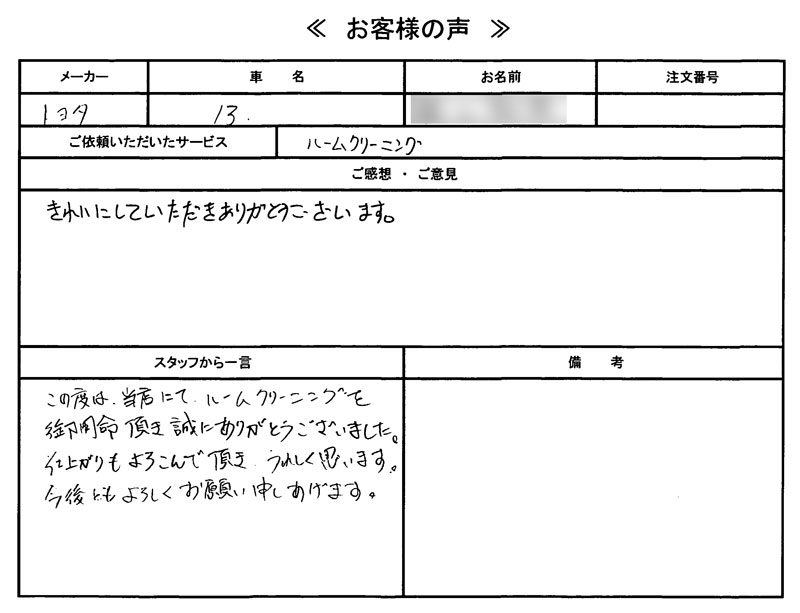 ≪ お客様の声 ≫
メーカー 車 名 お名前 注文番号
トヨタ 13.
ご依頼いただいたサービス ルームクリーニング
ご感想・ご意見
きれいにしていただきありがとうございます。
スタッフから一言 備 考
この度は、当店にて、ルームクリーニングを
御用命頂き誠にありがとうございました。
仕上がりもよろこんで頂き、うれしく思います。
今後ともよろしくお願い申しあげます。